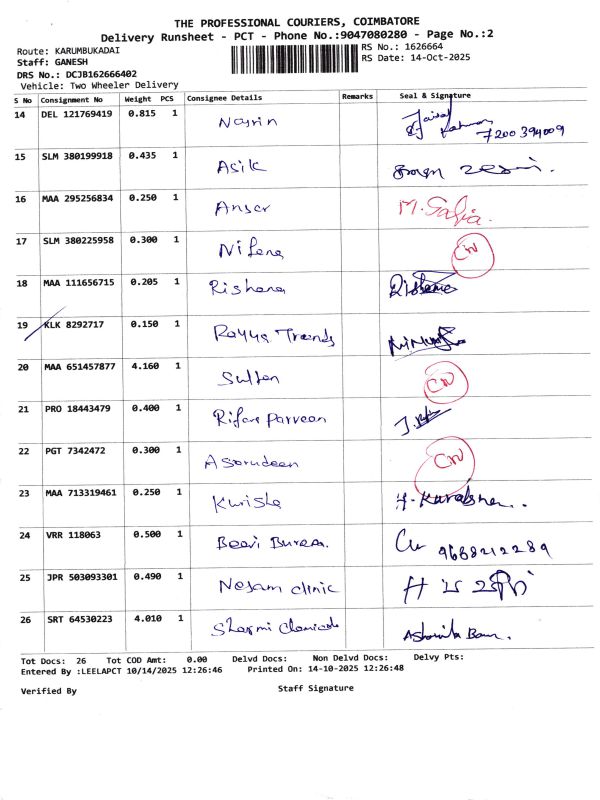 THE PROFESSIONAL COURIERS, COIMBATORE
Delivery Runsheet - PCT - Phone No.:9047080280 - Page No.:2
Route: KARUMBUKADAI
RS No.: 1626664
Staff: GANESH
RS Date: 14-Oct-2025
DRS No.: DCJB162666402
Vehicle: Two Wheeler Delivery
S No Consignment No Weight PCS Consignee Details Remarks Seal & Signature
14 DEL 121769419 0.815 1 Nasrin 7200394009
15 SLM 380199918 0.435 1 Asik
16 MAA 295256834 0.250 1 Anser M. Safia.
17 SLM 380225958 0.300 1 Nifena CN
18 MAA 111656715 0.205 1 Rishana Rishana
19 KLK 8292717 0.150 1 Rayya Trends
20 MAA 651457877 4.160 1 Sultan CN
21 PRO 18443479 0.400 1 Rifana Parveen
22 PGT 7342472 0.300 1 Asarudeen CN
23 MAA 713319461 0.250 1 Kurisha
24 VRR 118063 0.500 1 Beevi 9688212289
25 JPR 503093301 0.490 1 Nesam clinic
26 SRT 64530223 4.010 1 Sharmi
Tot Docs: 26 Tot COD Amt: 0.00 Delvd Docs: Non Delvd Docs: Delvy Pts:
Entered By :LEELAPCT 10/14/2025 12:26:46 Printed On: 14-10-2025 12:26:48
Verified By Staff Signature